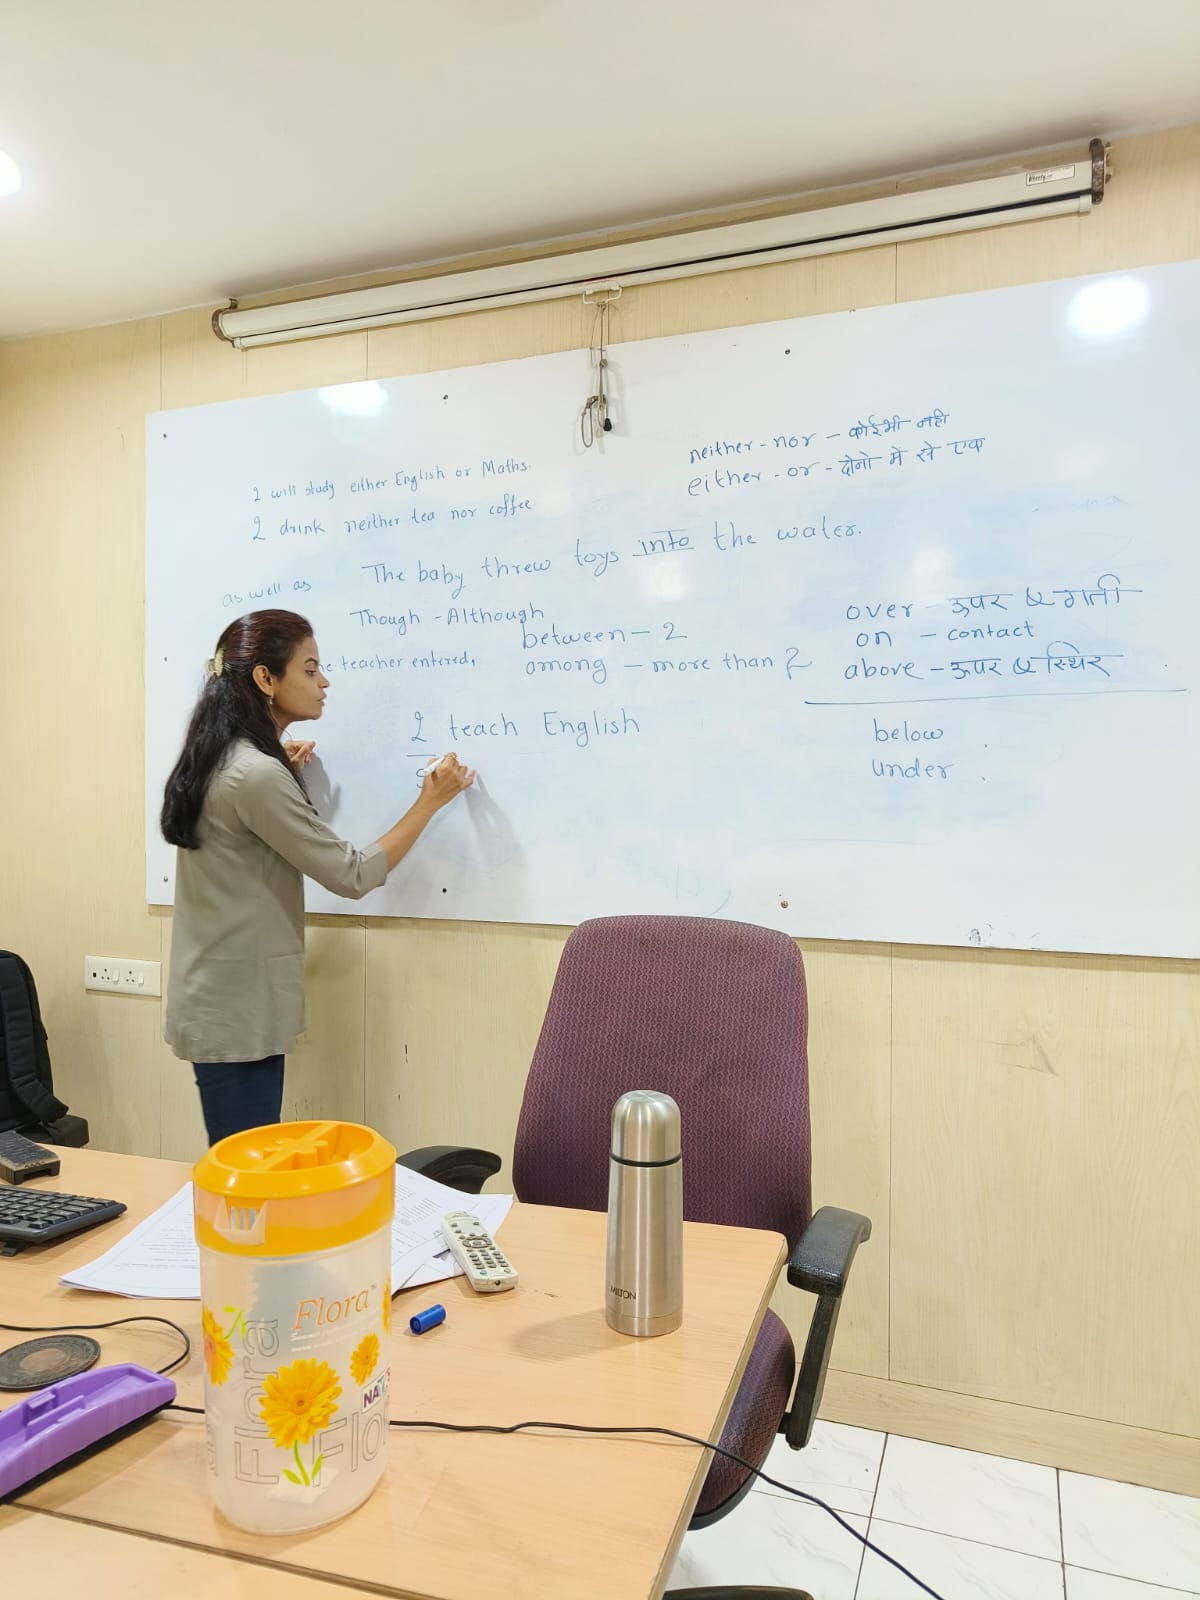 I will study either English or Maths.
I drink neither tea nor coffee
neither - nor - कोई भी नही
either - or - दोनों में से एक
The baby threw toys into the water.
as well as
Though - Although
between - 2
among - more than 2
teacher entered,
over - ऊपर & गती
on - contact
above - ऊपर & स्थिर
below
under
I teach English
S
Flora
Flora
Flo
MILTON